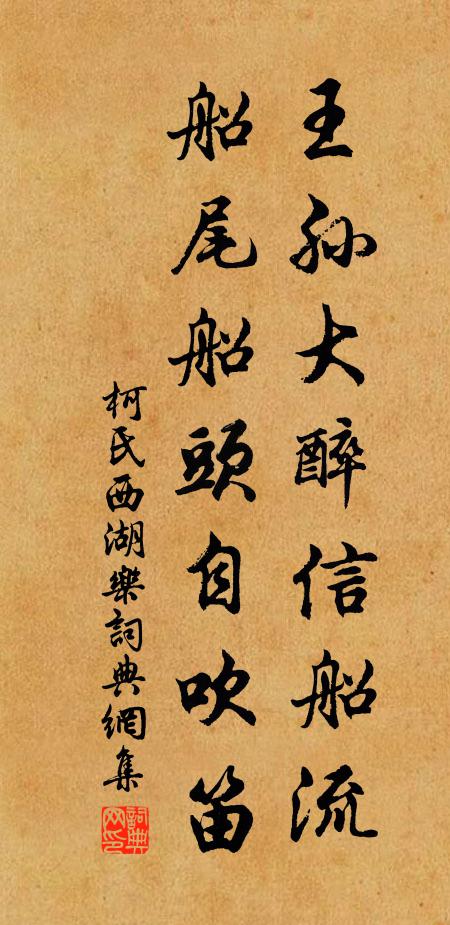 王孫大醉信船流
船尾船頭自吹笛
柯氏西湖樂詞典網集
詞典網印